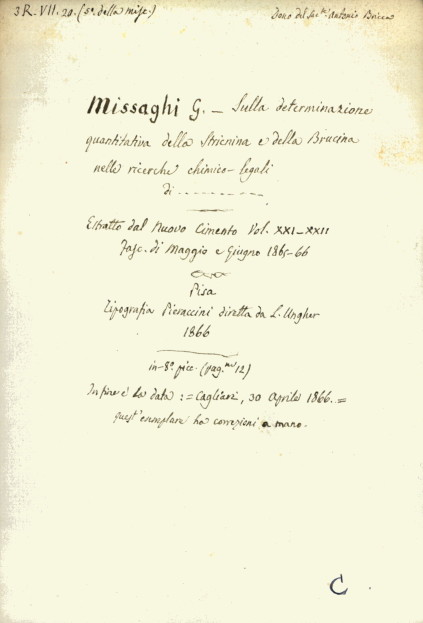 3R.VII.20. (5ª della misc.)
Dono del Antonio Bricca
Missaghi G. — Sulla determinazione
quantitativa della Stricnina e della Brucina
nelle ricerche chimico-legali
di - - - - - - - - -
Estratto dal Nuovo Cimento Vol. XXI-XXII
Fasc. di Maggio e Giugno 1865-66
Pisa
Tipografia Pieraccini diretta da L. Ungher
1866
in-8º. picc. (pag.ne 12)
In fine è la data := Cagliari, 30 Aprile 1866. =
quest'esemplare ha correzioni a mano.
C